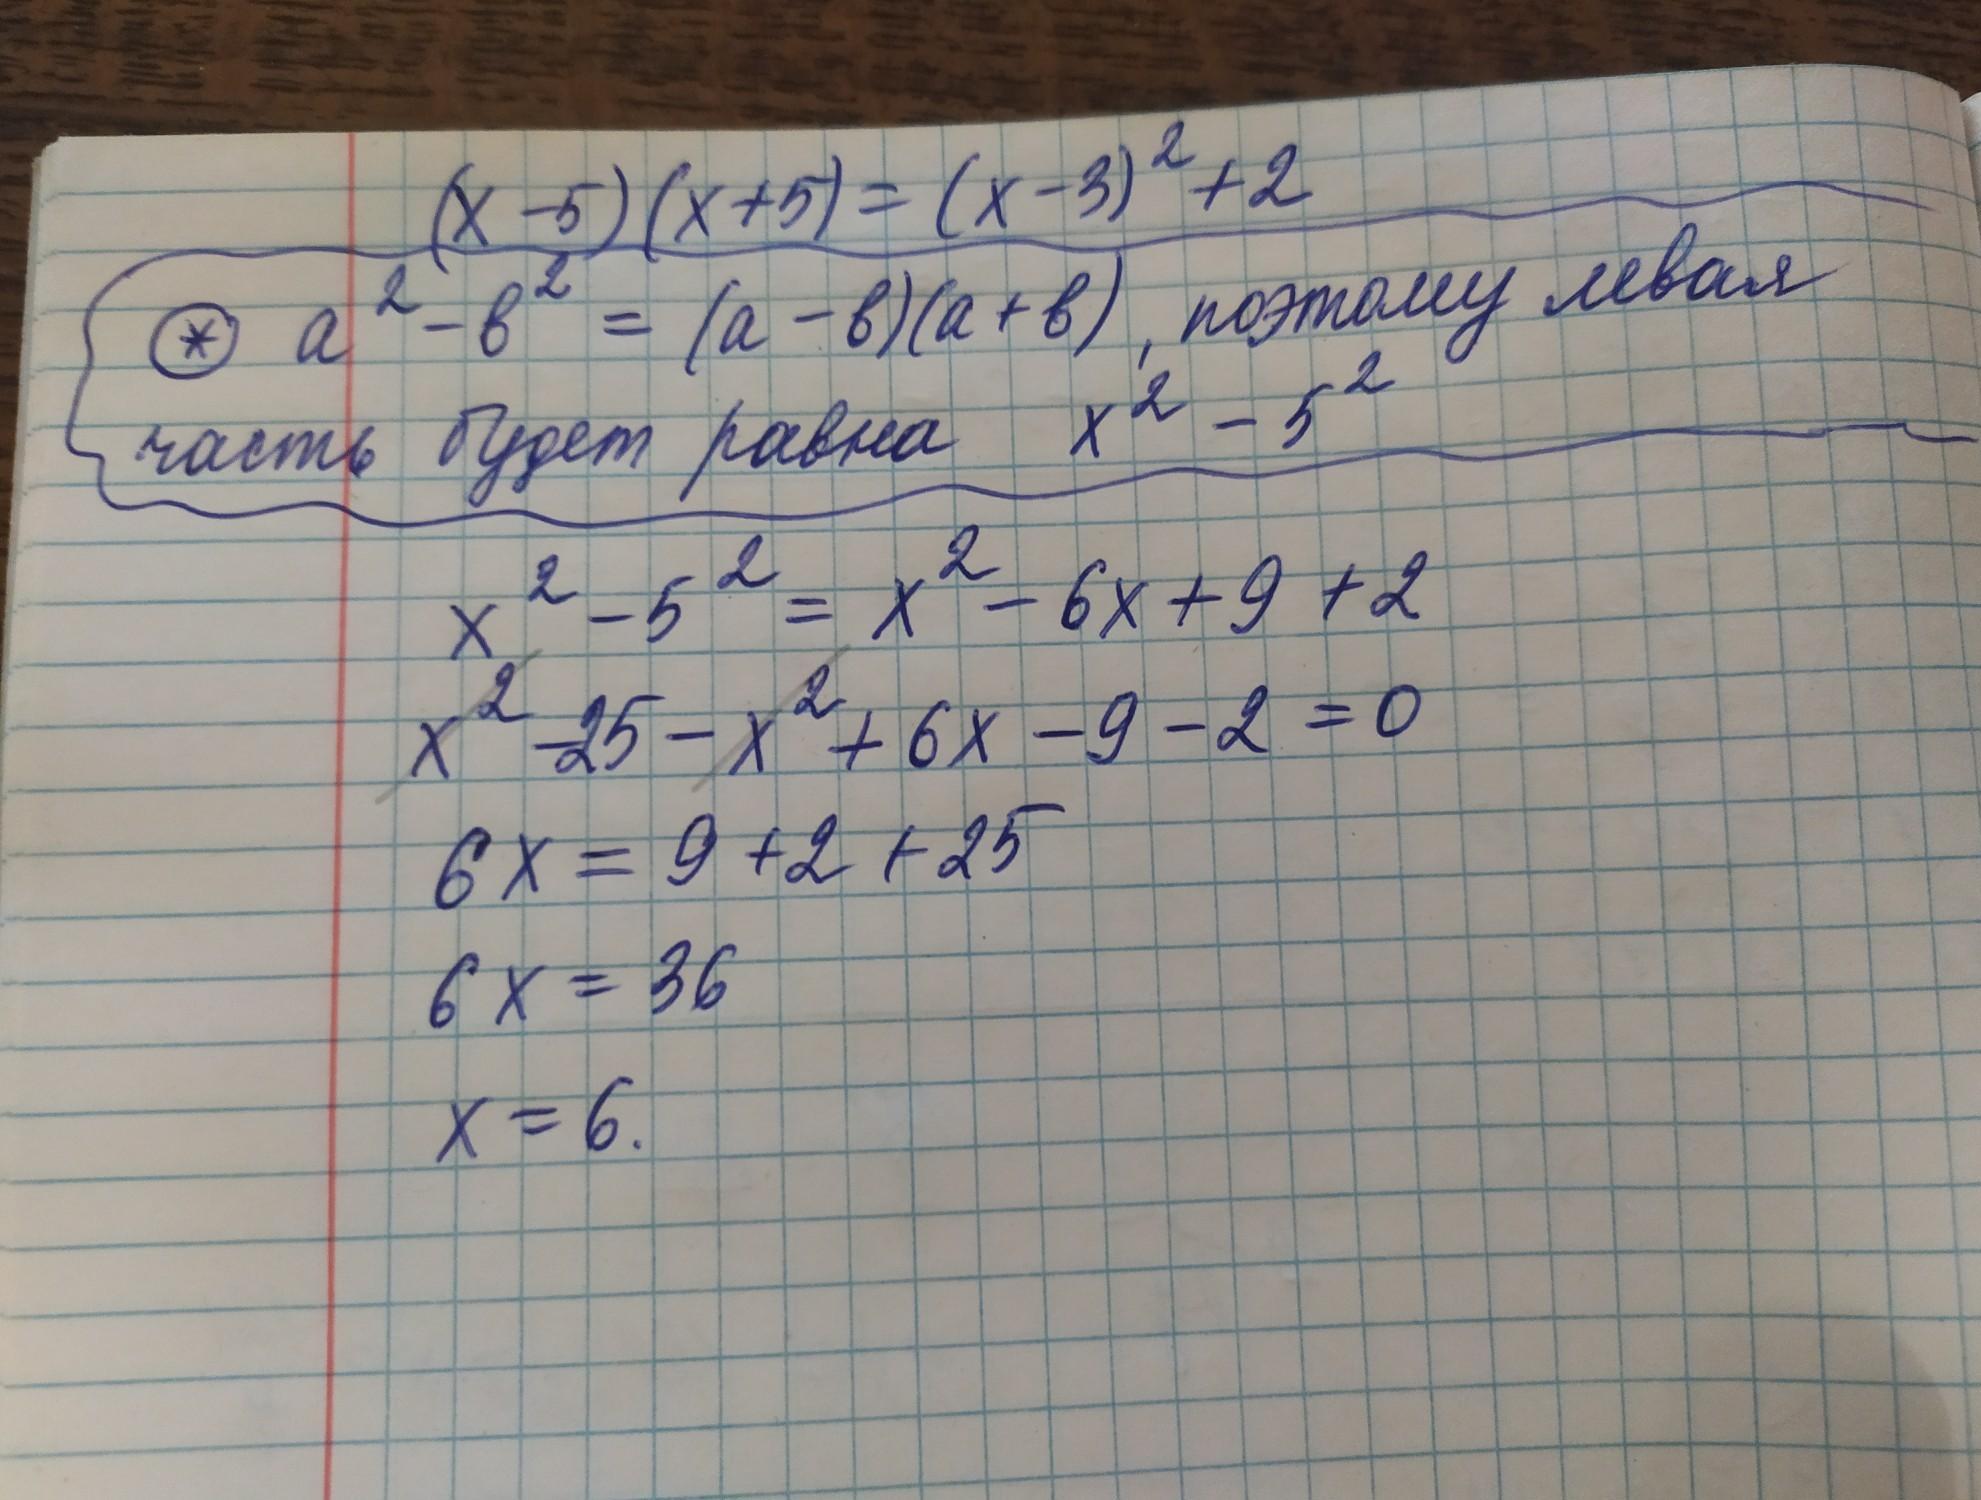 (x-5)(x+5)=(x-3)²+2
* a²-в²=(a-в)(a+в), поэтому левая
часть будет равна x²-5²
x²-5²=x²-6x+9+2
x²-25-x²+6x-9-2=0
6x=9+2+25
6x=36
x=6.